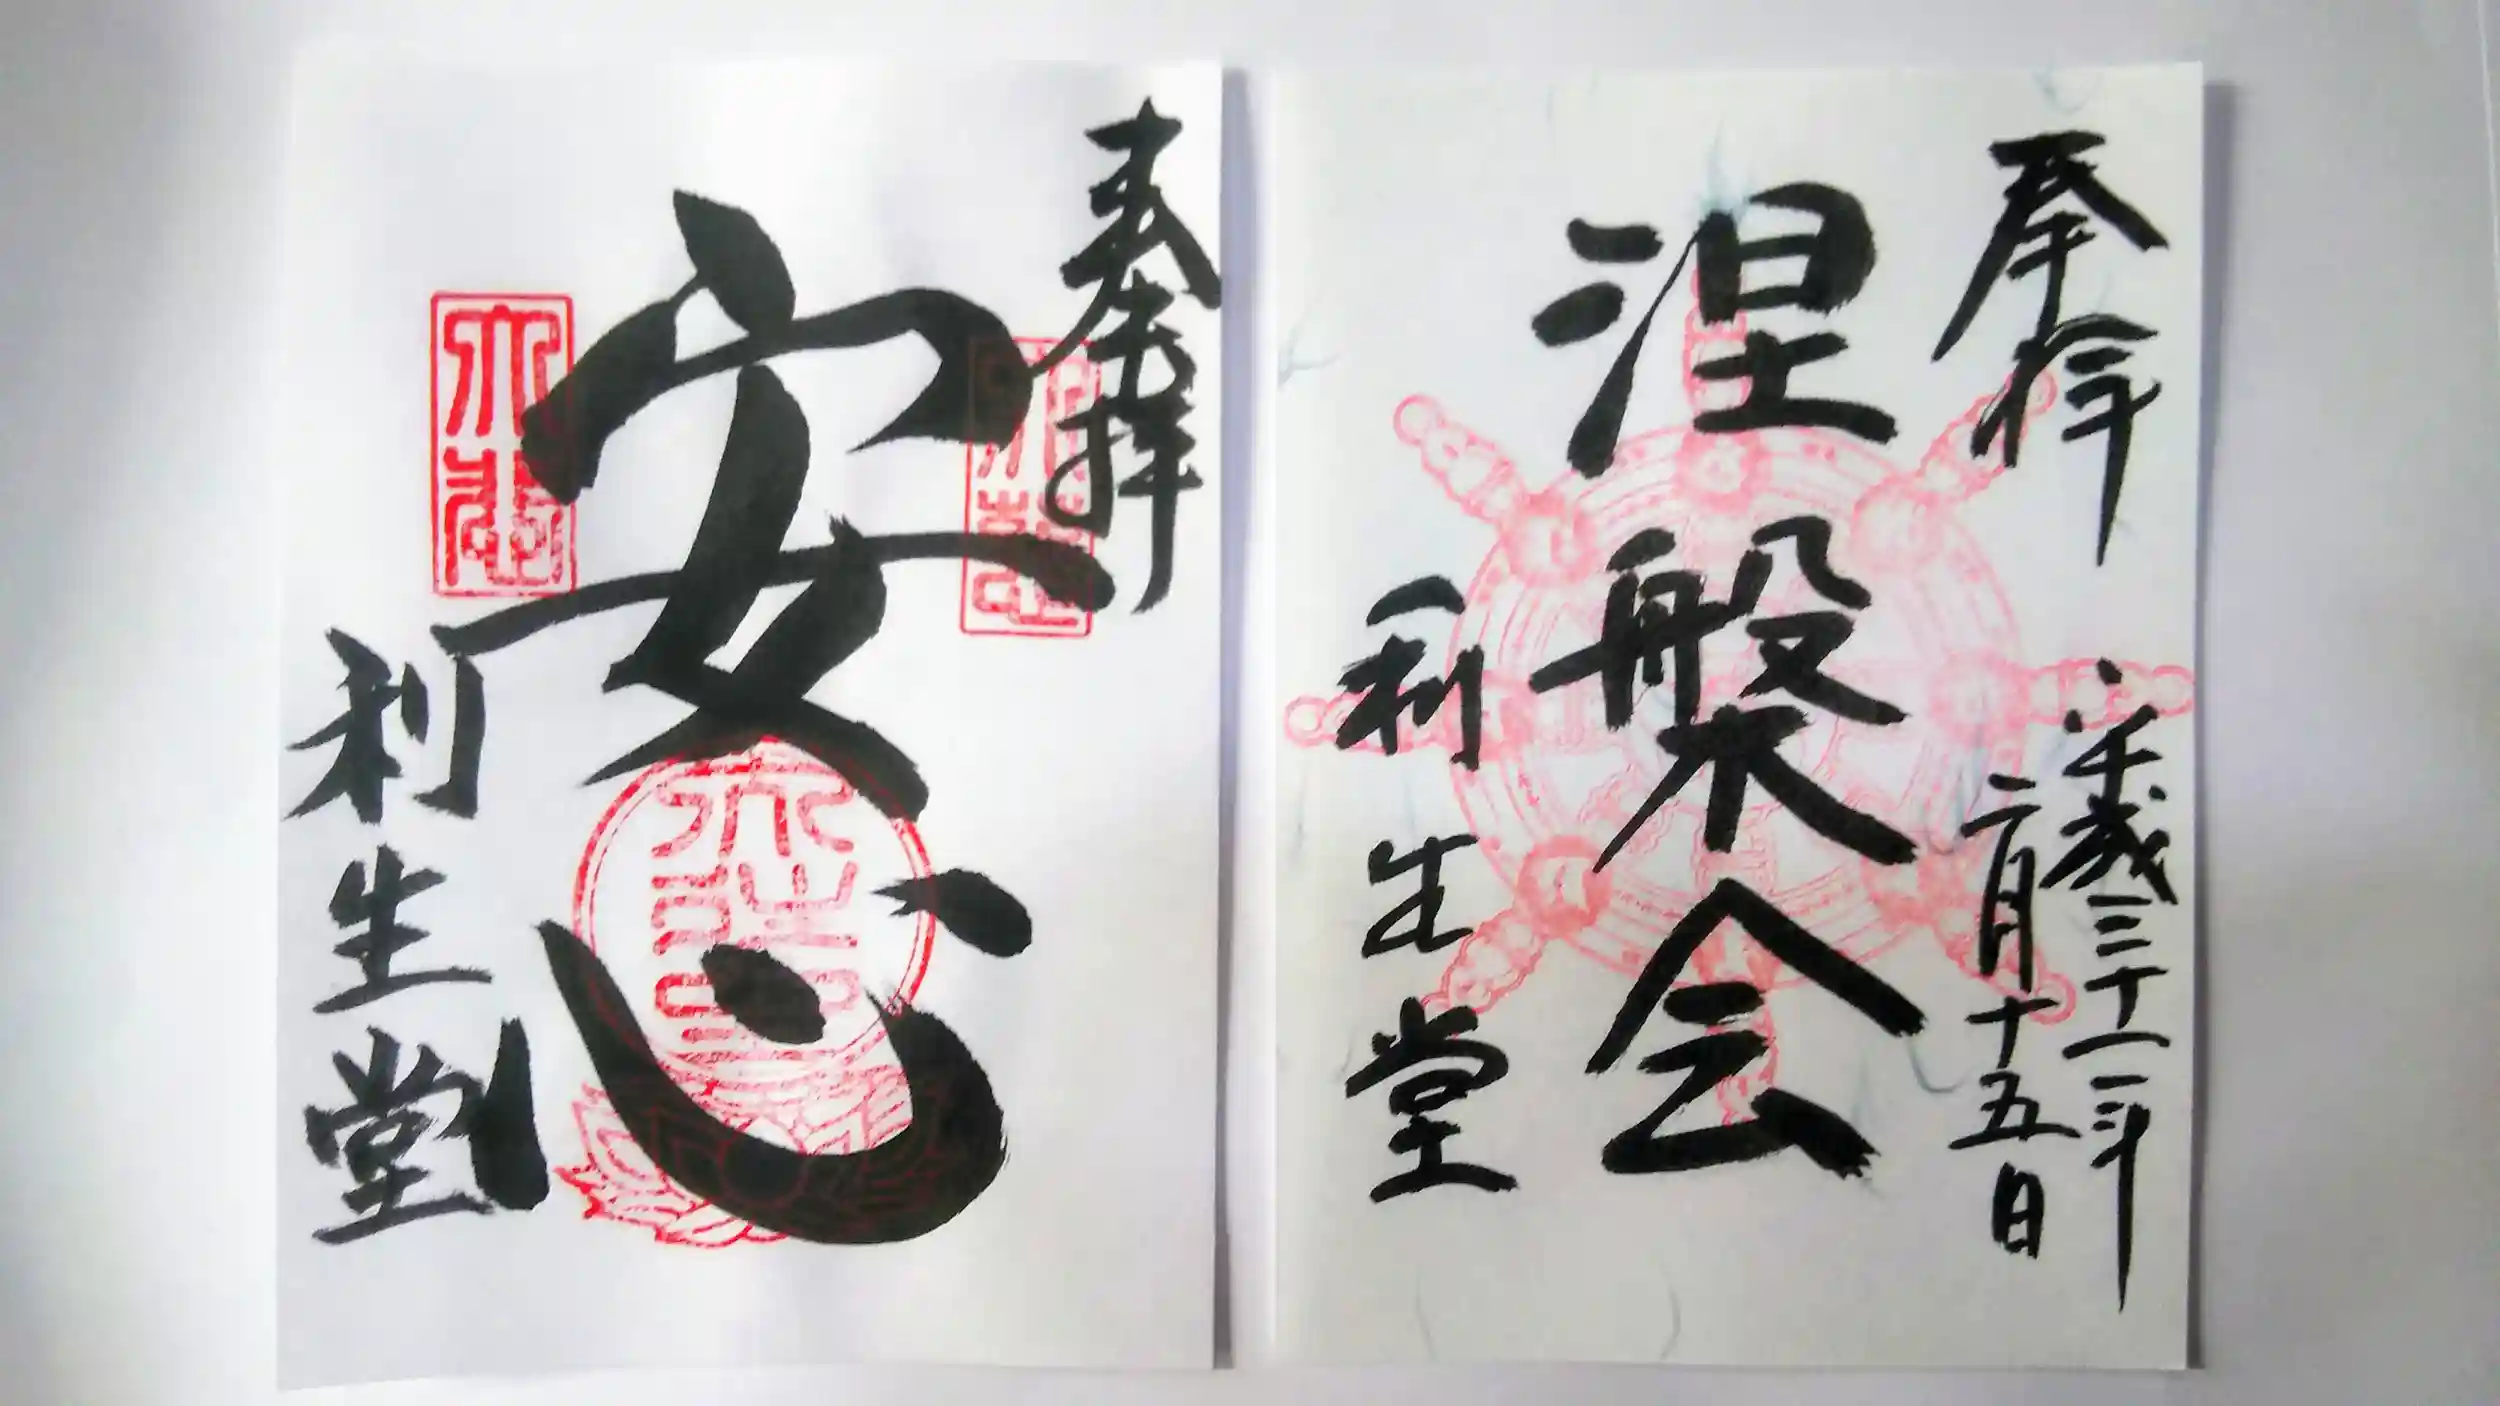 奉拝
平成三十一年
二月十五日
涅槃会
利生堂
奉拝
安心
利生堂